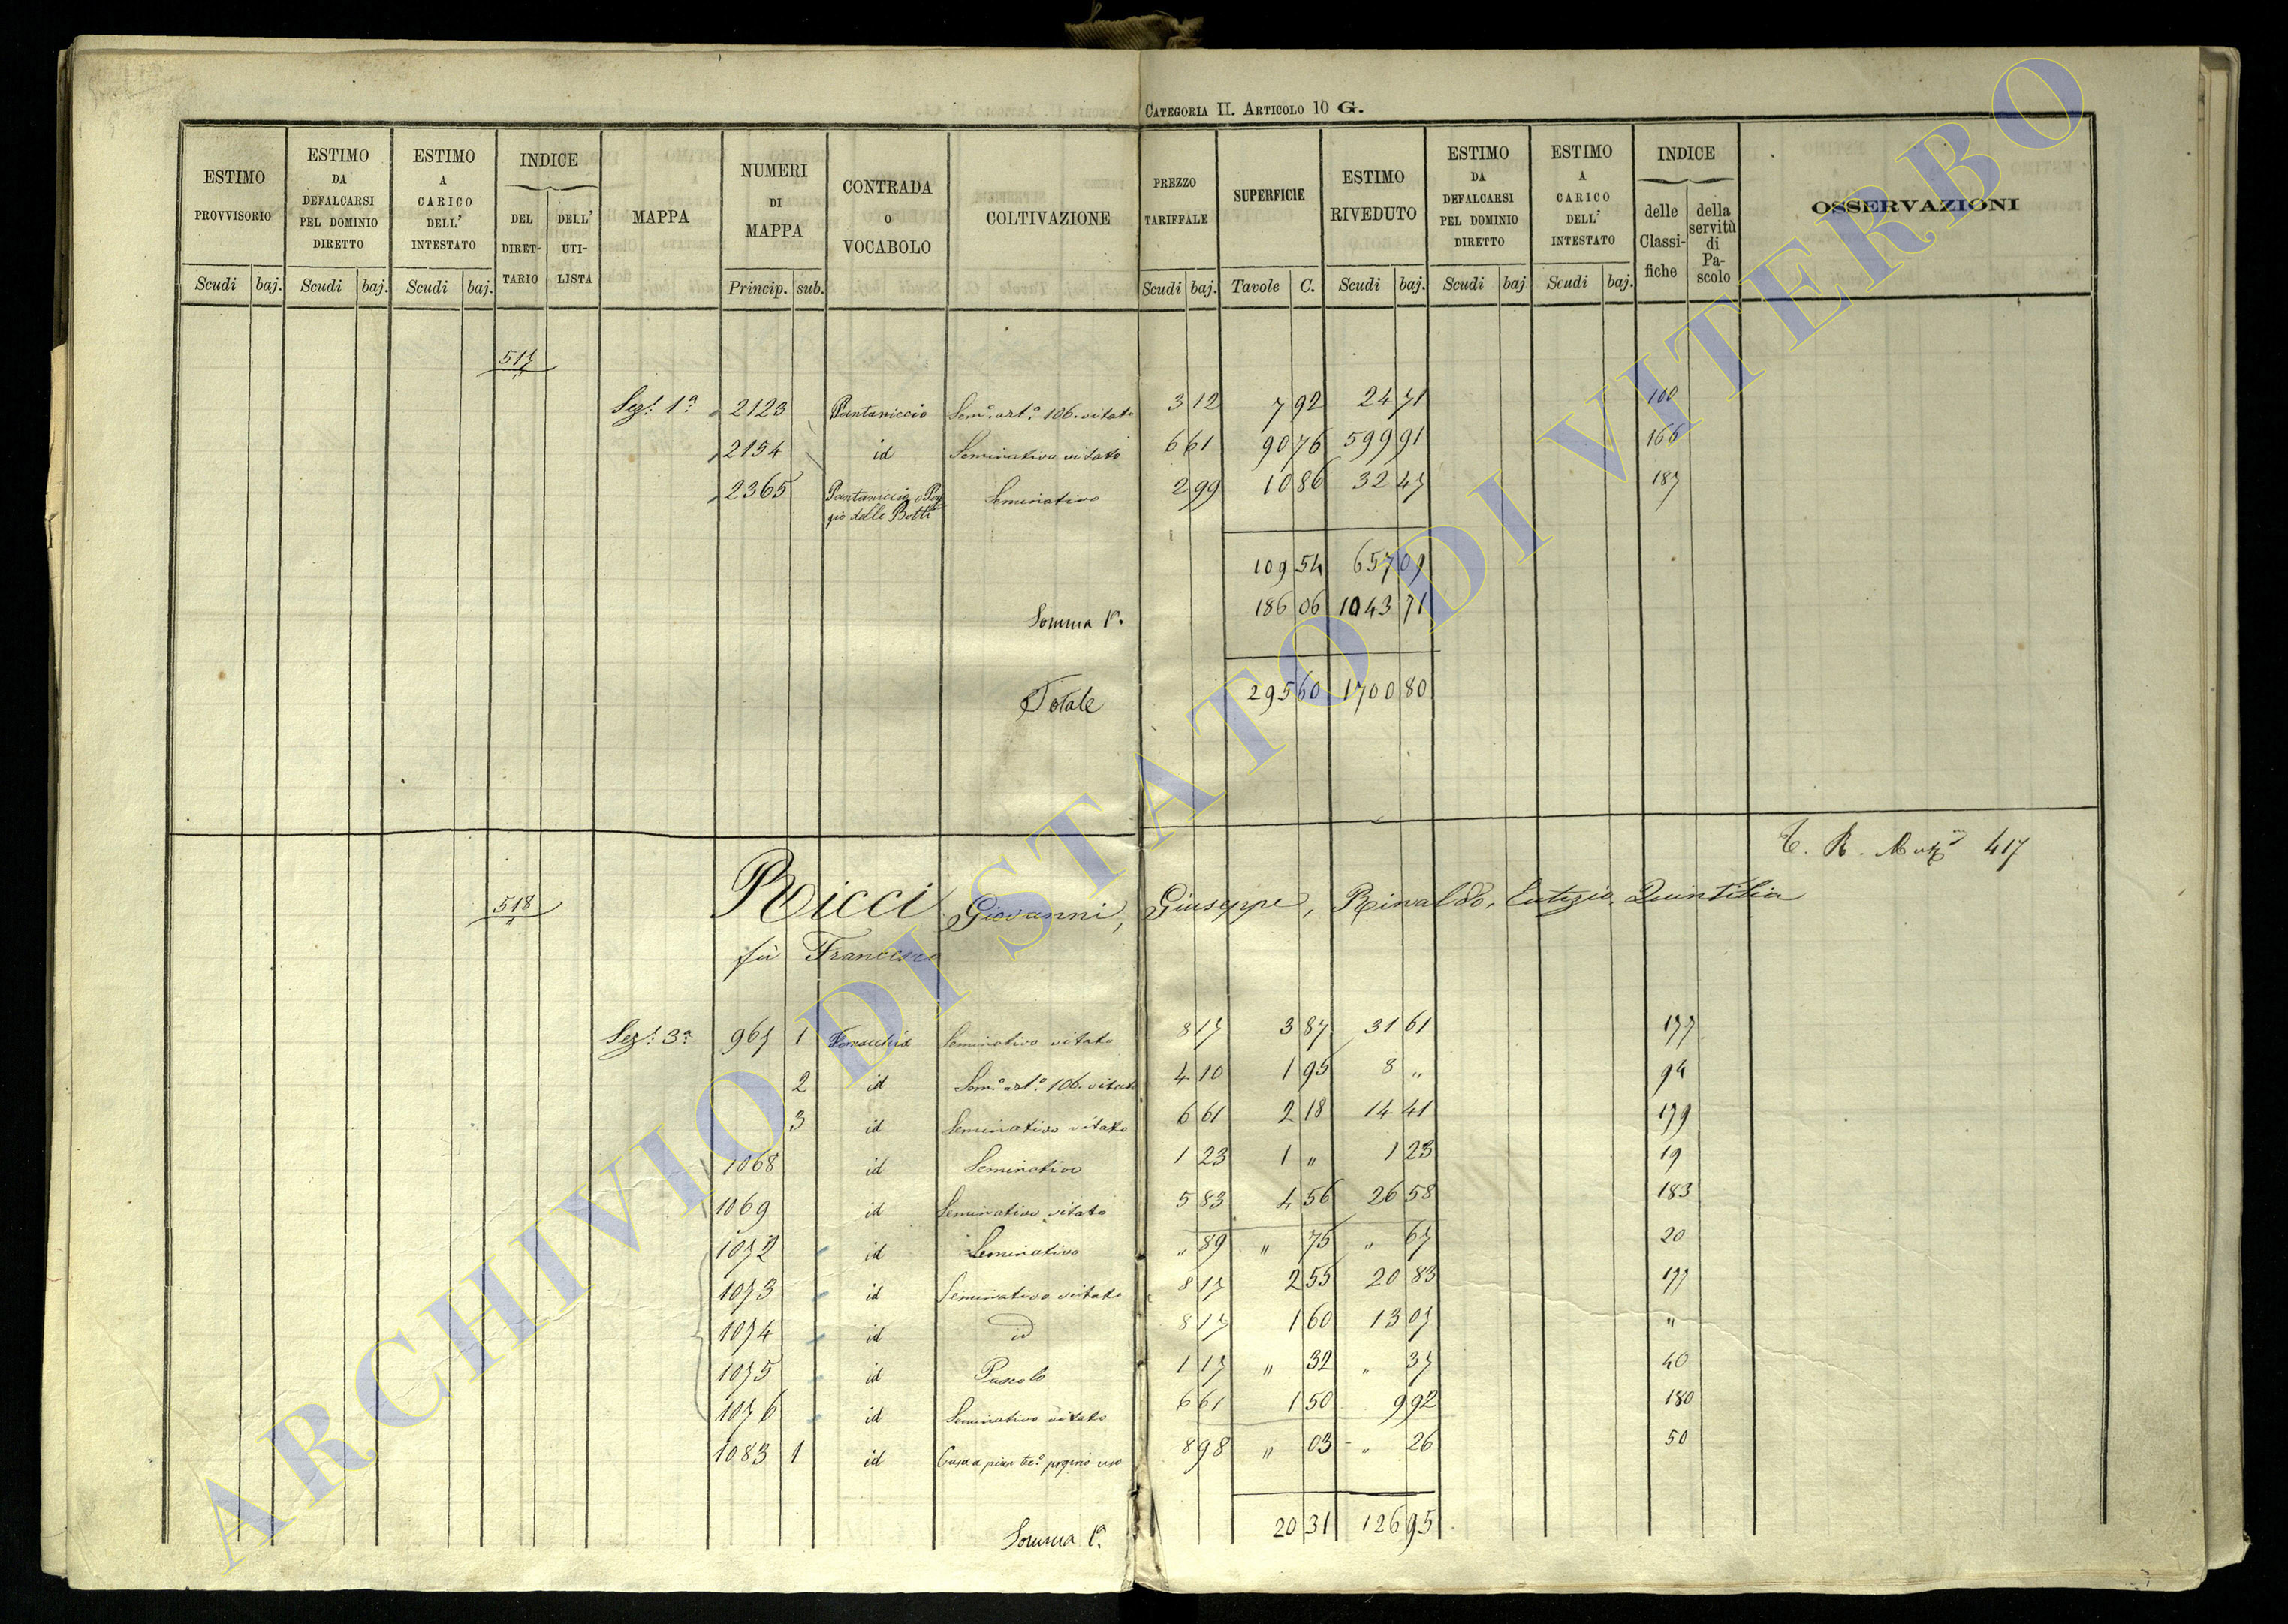 Categoria II. Articolo 10 G.
ESTIMO PROVVISORIO | ESTIMO DA DEFALCARSI PEL DOMINIO DIRETTO | ESTIMO A CARICO DELL' INTESTATO | INDICE DEL DIRETTARIO | DELL' UTILISTA | MAPPA | NUMERI DI MAPPA | CONTRADA O VOCABOLO | COLTIVAZIONE | PREZZO TARIFFALE | SUPERFICIE | ESTIMO RIVEDUTO | ESTIMO DA DEFALCARSI PEL DOMINIO DIRETTO | ESTIMO A CARICO DELL' INTESTATO | INDICE delle Classifiche | della servitù di Pascolo | OSSERVAZIONI
Scudi baj. | Scudi baj. | Scudi baj. | Princip. sub. | Scudi baj. | Tavole C. | Scudi baj. | Scudi baj | Scudi baj.
517
Sez. 1ª 2123 Pantaniccio Sem.º art.º 106. vitato 3 12 7 92 24 71 100
2154 id Seminativo vitato 6 61 90 76 599 91 166
2365 Pantaniccio o Pog
gio delle Botti Seminativo 2 99 10 86 32 47 187
109 54 657 09
Somma 1ª. 186 06 1043 71
Totale 295 60 1700 80
C. R. 417
518 Ricci Giovanni, Giuseppe, Rinaldo, Eutizio, Quintilia
fù Francesco
Sez. 3ª 967 1 Seminativo vitato 8 17 3 87 31 61 177
2 id Sem.º art.º 106. vitato 4 10 1 95 8 " 94
3 id Seminativo vitato 6 61 2 18 14 41 179
1068 id Seminativo 1 23 1 " 1 23 19
1069 id Seminativo vitato 5 83 4 56 26 58 183
1072 id Seminativo " 89 " 75 " 67 20
1073 id Seminativo vitato 8 17 2 55 20 83 177
1074 id id 8 17 1 60 13 07 "
1075 id Pascolo 1 17 " 32 " 37 40
1076 id Seminativo vitato 6 61 1 50 9 92 180
1083 1 id Casa a pian ter.º proprio uso 8 98 " 03 " 26 50
20 31 126 95
Somma 1ª.
ARCHIVIO DI STATO DI VITERBO